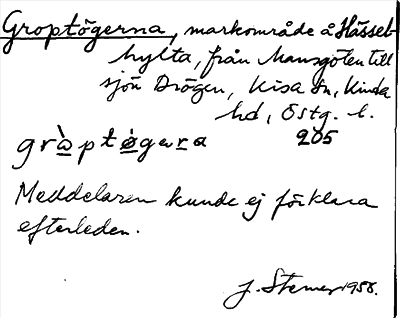 Groptögerna, markområde å Hässel-
hylta, från Mansgöten till
sjön Drögen, Kisa sn, Kinda
hd, Östg. l.
205
gràptøgerna
Meddelaren kunde ej förklara
efterleden.
J. Stemer 1958.